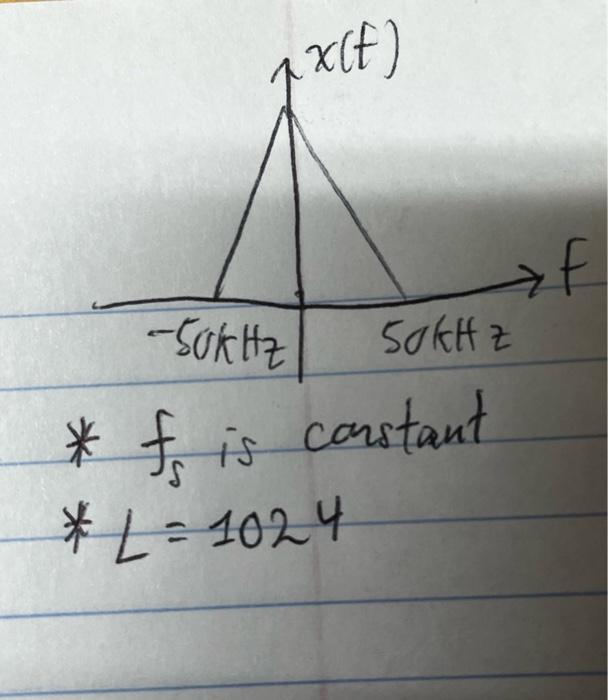 x(f)
f
-50kHz 50kHz
* fs is constant
* L = 1024